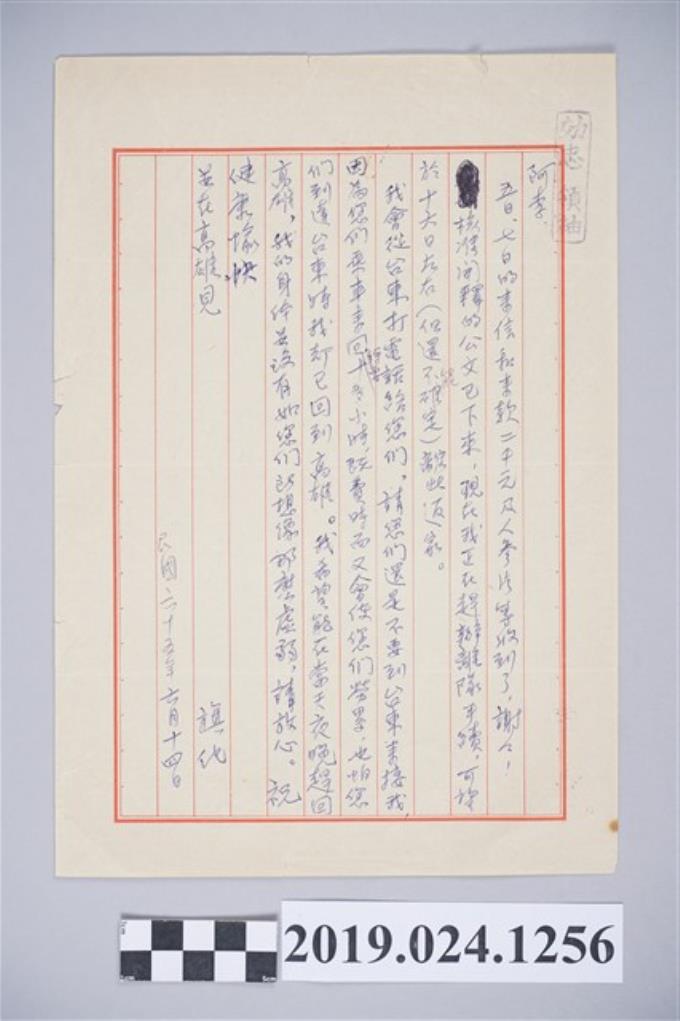 効忠領袖
阿李:
五日、七日的來信和來款二千元及人參片等收到了,謝々!
核准開釋的公文已下來,現在我正在趕辦離隊手續,可望
於十六日左右(但還不確定)離此返家。
我會從台東打電話給您們。請您們還是不要到台東來接我
因為您們乘車來回十多小時,既費時而又會使您們勞累,也怕您
們到達台東時我却已回到高雄。我希望能在當天夜晚趕回
高雄,我的身体並沒有如您們所想像那麼虛弱,請放心。祝
健康愉快
並在高雄見
民國六十五年六月十四日
2019.024.1256